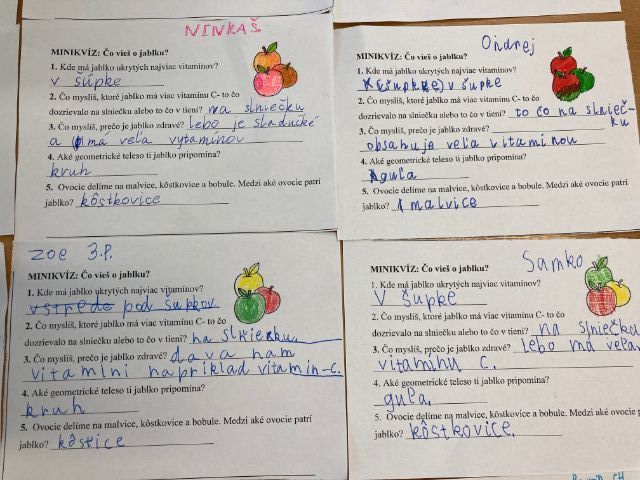 NINKA Š.
MINIKVÍZ: Čo vieš o jablku?
1. Kde má jablko ukrytých najviac vitamínov?
v šúpke
2. Čo myslíš, ktoré jablko má viac vitamínu C- to čo
dozrievalo na slniečku alebo to čo v tieni? na slniečku
3. Čo myslíš, prečo je jablko zdravé? lebo je sladučké
a má veľa vytamínov
4. Aké geometrické teleso ti jablko pripomína?
kruh
5. Ovocie delíme na malvice, kôstkovice a bobule. Medzi aké ovocie patrí
jablko? kôstkovice
Ondrej
MINIKVÍZ: Čo vieš o jablku?
1. Kde má jablko ukrytých najviac vitamínov?
(šupke) v šupke
2. Čo myslíš, ktoré jablko má viac vitamínu C- to čo
dozrievalo na slniečku alebo to čo v tieni? to čo na slnieč-
ku
3. Čo myslíš, prečo je jablko zdravé?
obsahuje veľa vitamínou
4. Aké geometrické teleso ti jablko pripomína?
guľa
5. Ovocie delíme na malvice, kôstkovice a bobule. Medzi aké ovocie patrí
jablko? malvice
zoe 3.P.
MINIKVÍZ: Čo vieš o jablku?
1. Kde má jablko ukrytých najviac vitamínov?
v strede pod šupkov
2. Čo myslíš, ktoré jablko má viac vitamínu C- to čo
dozrievalo na slniečku alebo to čo v tieni? na slniečku
3. Čo myslíš, prečo je jablko zdravé? dava nam
vitamini napríklad vitamín-C.
4. Aké geometrické teleso ti jablko pripomína?
kruh
5. Ovocie delíme na malvice, kôstkovice a bobule. Medzi aké ovocie patrí
jablko? kôstice
Samko
MINIKVÍZ: Čo vieš o jablku?
1. Kde má jablko ukrytých najviac vitamínov?
V šupke
2. Čo myslíš, ktoré jablko má viac vitamínu C- to čo
dozrievalo na slniečku alebo to čo v tieni? na slniečku
3. Čo myslíš, prečo je jablko zdravé? Lebo má veľa
vitamínu C.
4. Aké geometrické teleso ti jablko pripomína?
guľa.
5. Ovocie delíme na malvice, kôstkovice a bobule. Medzi aké ovocie p
jablko? kôstkovice.